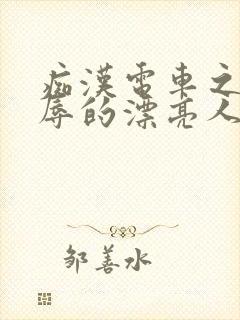 痴漢電車之
辱的漂亮人
邹善水